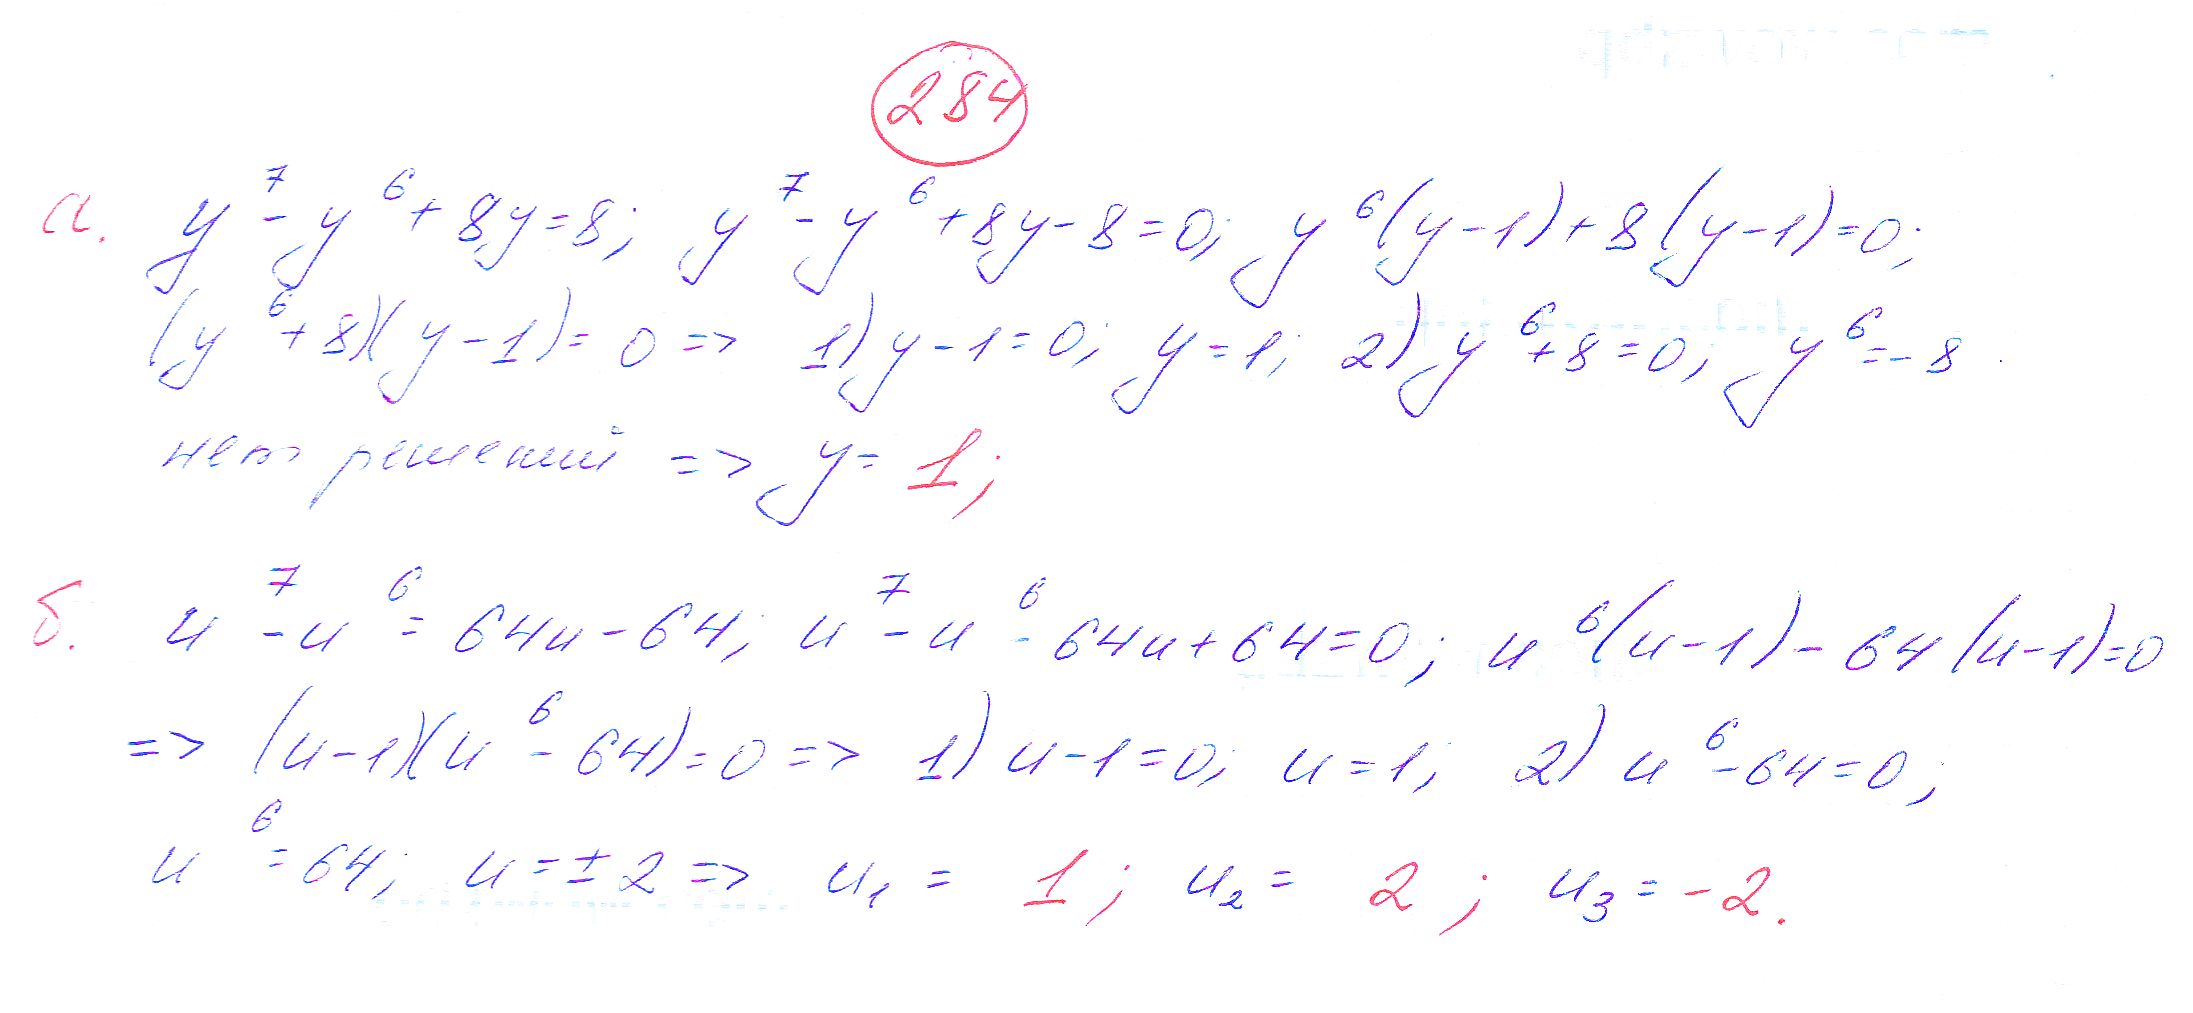 284
а. y⁷-y⁶+8y=8; y⁷-y⁶+8y-8=0; y⁶(y-1)+8(y-1)=0;
(y⁶+8)(y-1)=0 => 1) y-1=0; y=1; 2) y⁶+8=0; y⁶=-8
нет решений => y=1;
б. u⁷-u⁶=64u-64; u⁷-u⁶-64u+64=0; u⁶(u-1)-64(u-1)=0
=> (u-1)(u⁶-64)=0 => 1) u-1=0; u=1; 2) u⁶-64=0;
u⁶=64; u=±2 => u₁=1; u₂=2; u₃=-2.